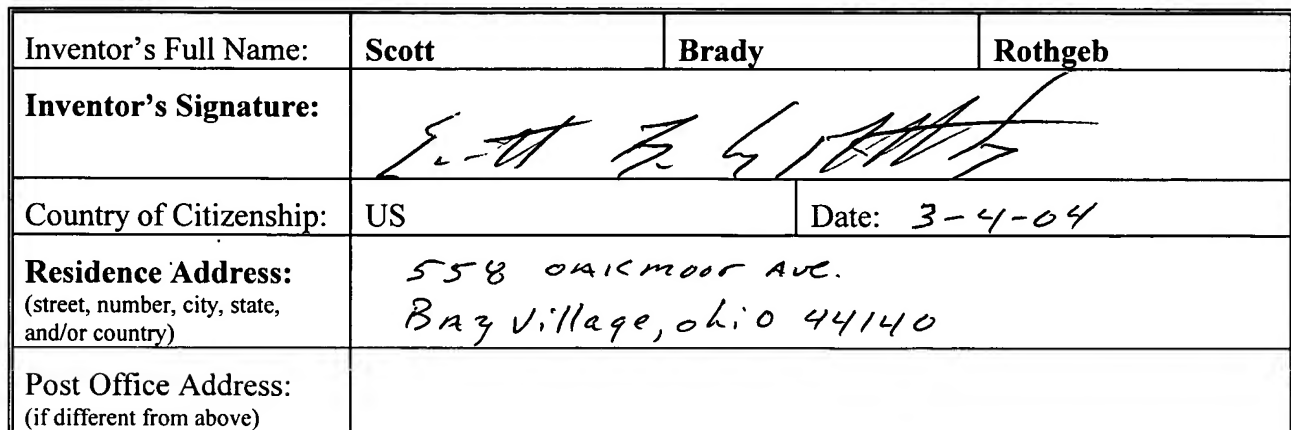 Inventor's Full Name: Scott Brady Rothgeb
Inventor's Signature: Scott Brady Rothgeb
Country of Citizenship: US Date: 3-4-04
Residence Address: 558 OAKmoor Ave.
(street, number, city, state,
and/or country) BAy Village, ohio 44140
Post Office Address:
(if different from above)